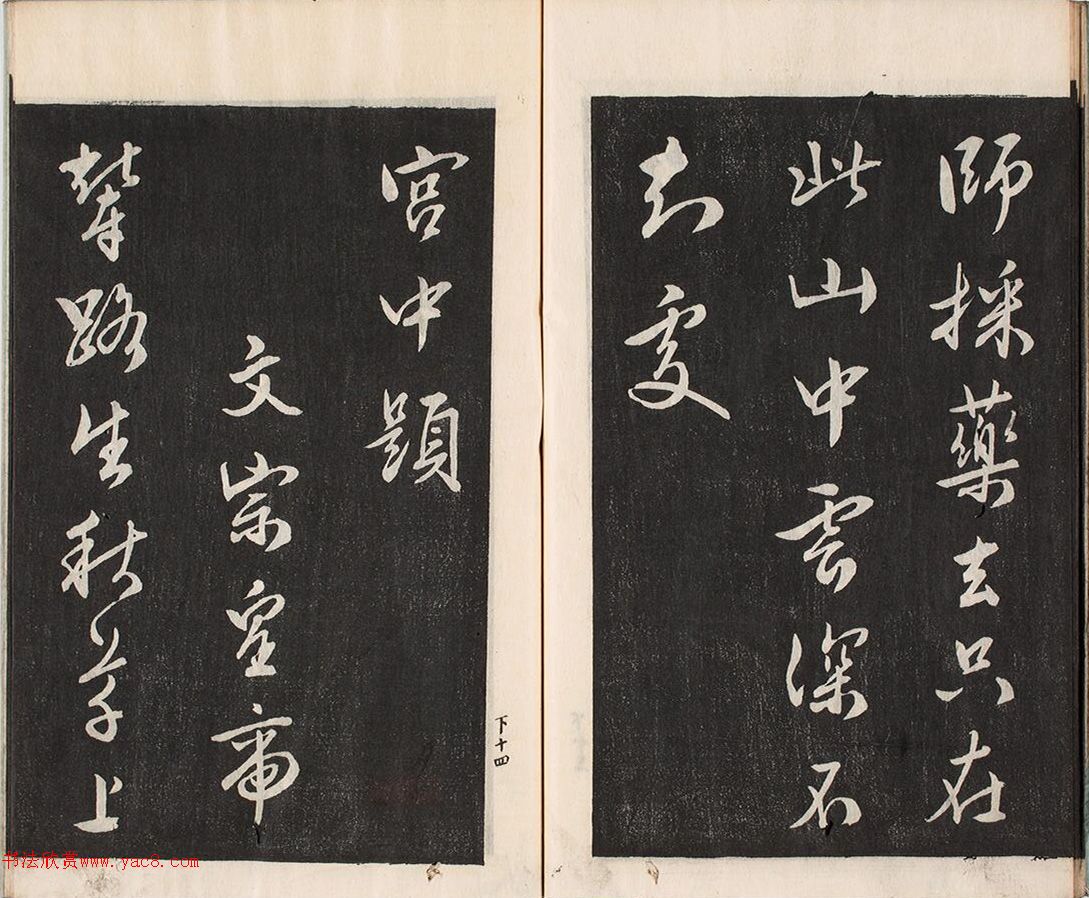 師採藥去只在
此山中雲深不
知處
宮中題
文宗皇帝
輦路生秋草上
下十四
书法欣赏www.yac8.com